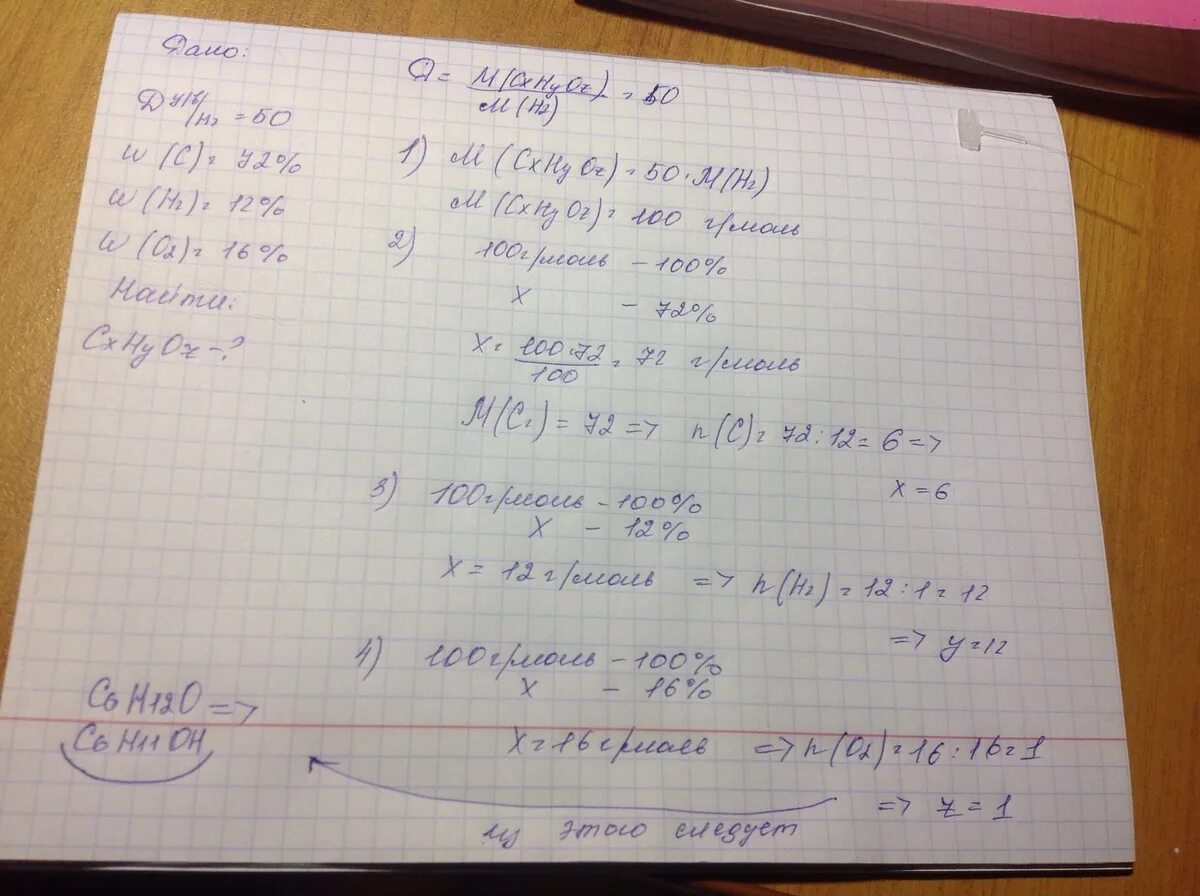 Дано:
D /H2 = 50
W (C) = 72%
W (H2) = 12%
W (O2) = 16%
Найти:
CxHyOz - ?
D = M(CxHyOz) / M(H2) = 50
1) M (CxHyOz) = 50 · M(H2)
M (CxHyOz) = 100 г/моль
2) 100г/моль - 100%
x - 72%
x = 100·72 / 100 = 72 г/моль
M(C2) = 72 => n (C) = 72 : 12 = 6 =>
x = 6
3) 100г/моль - 100%
x - 12%
x = 12 г/моль => n (H2) = 12 : 1 = 12
=> y = 12
4) 100г/моль - 100%
x - 16%
x = 16 г/моль => n (O2) = 16 : 16 = 1
=> z = 1
из этого следует
C6H12O =>
C6H11OH